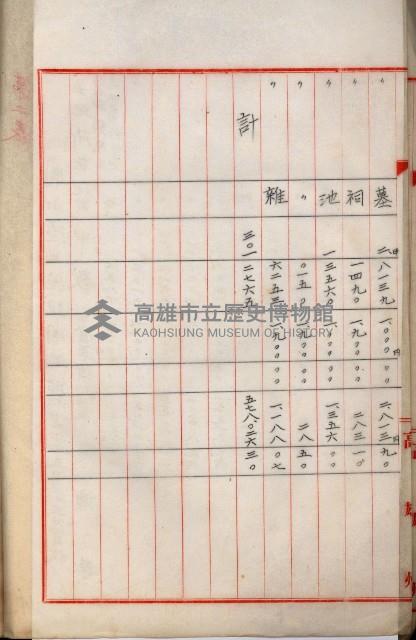 〃 墓 二、八一三九 一、〇〇〇〇〇 二、八一三九〇
〃 祠 一四九〇 一、九〇〇〇〇 二八三一〇
〃 池 一三五六〇 一、〇〇〇〇〇 一、三五六〇〇
〃 〃 〇一五〇 一、九〇〇〇〇 二八五〇
〃 雜 六二五三 一、九〇〇〇〇 一、一八八〇七
計 三〇一二七六五 五七八、〇二六三〇
高雄市立歷史博物館
KAOHSIUNG MUSEUM OF HISTORY
高